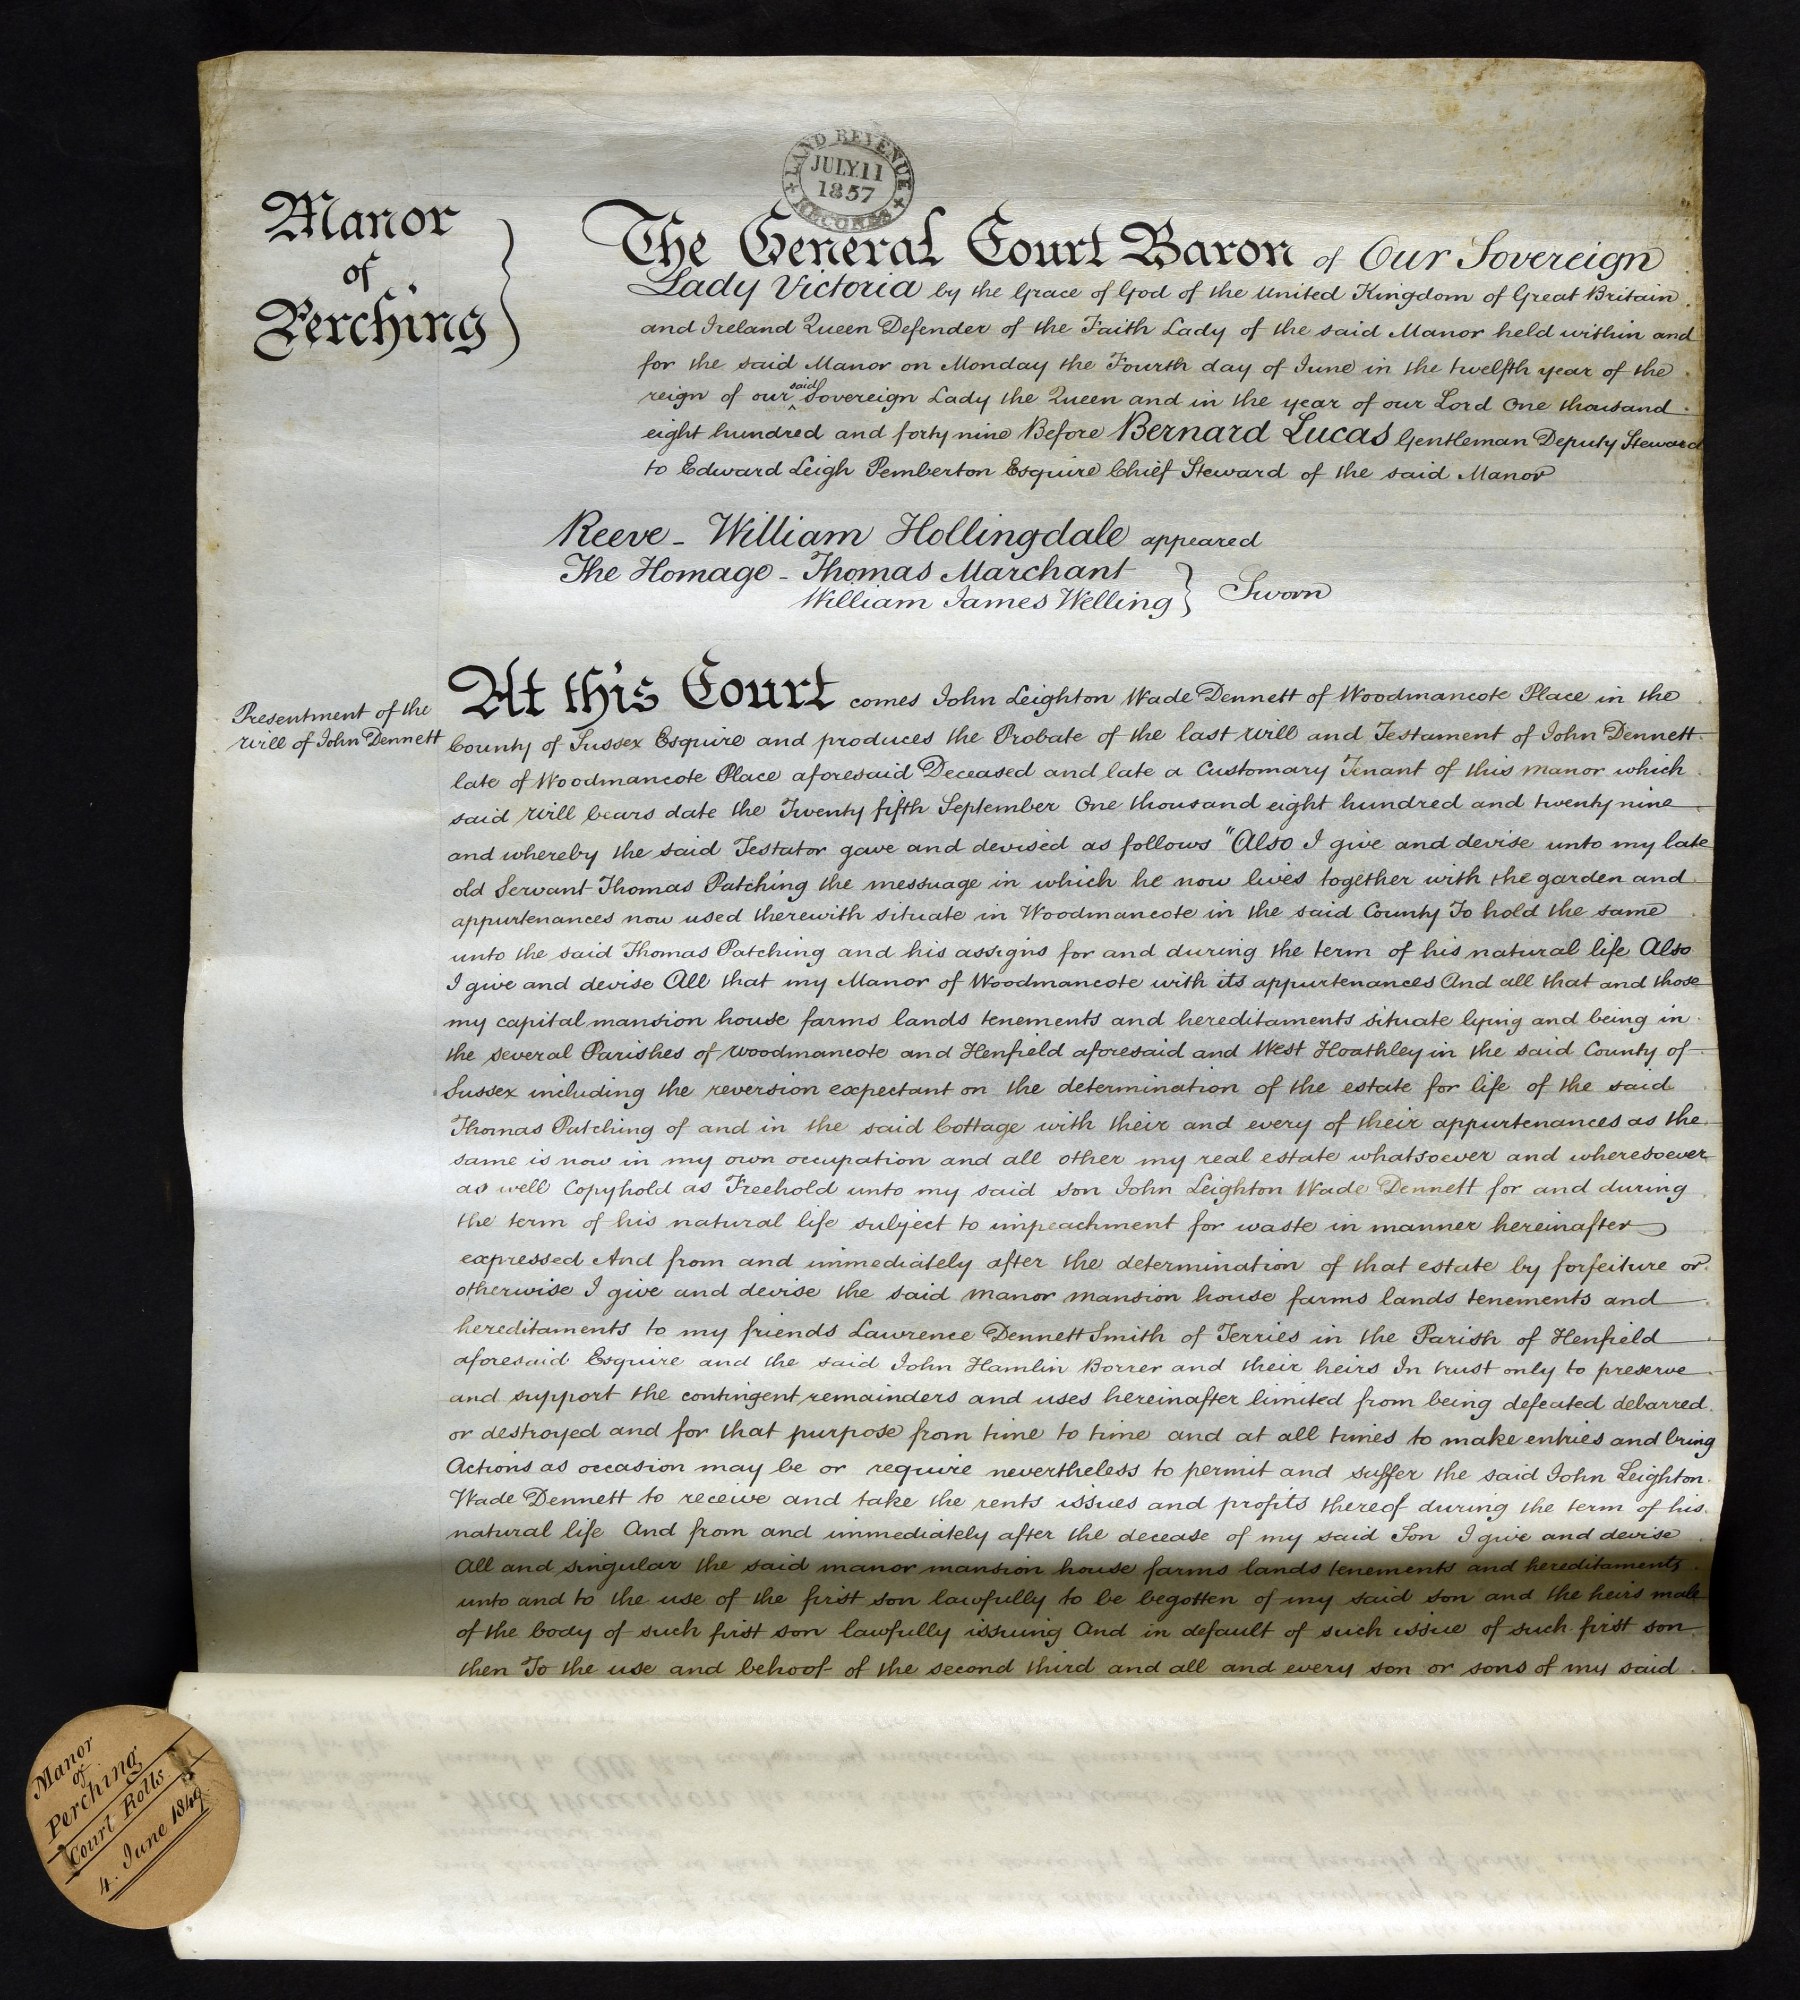 LAND REVENUE
JULY.11
1857
RECORDS
Manor
of
Perching
The General Court Baron of Our Sovereign
Lady Victoria by the Grace of God of the United Kingdom of Great Britain
and Ireland Queen Defender of the Faith Lady of the said Manor held within and
for the said Manor on Monday the Fourth day of June in the twelfth year of the
reign of our said Sovereign Lady the Queen and in the year of our Lord One thousand
eight hundred and forty nine Before Bernard Lucas Gentleman Deputy Steward
to Edward Leigh Pemberton Esquire Chief Steward of the said Manor
Reeve - William Hollingdale appeared
The Homage - Thomas Marchant
William James Welling } Sworn
Presentment of the
Will of John Dennett
At this Court comes John Leighton Wade Dennett of Woodmancote Place in the
County of Sussex Esquire and produces the Probate of the last Will and Testament of John Dennett
late of Woodmancote Place aforesaid Deceased and late a Customary Tenant of this Manor which
said Will bears date the Twenty fifth September One thousand eight hundred and twenty nine
and whereby the said Testator gave and devised as follows "Also I give and devise unto my late
old Servant Thomas Patching the messuage in which he now lives together with the garden and
appurtenances now used therewith situate in Woodmancote in the said County To hold the same
unto the said Thomas Patching and his assigns for and during the term of his natural life Also
I give and devise All that my Manor of Woodmancote with its appurtenances And all that and those
my capital mansion house farms lands tenements and hereditaments situate lying and being in
the several Parishes of Woodmancote and Henfield aforesaid and West Hoathley in the said County of
Sussex including the reversion expectant on the determination of the estate for life of the said
Thomas Patching of and in the said Cottage with their and every of their appurtenances as the
same is now in my own occupation and all other my real estate whatsoever and wheresoever
as well Copyhold as Freehold unto my said son John Leighton Wade Dennett for and during
the term of his natural life subject to impeachment for waste in manner hereinafter
expressed And from and immediately after the determination of that estate by forfeiture or
otherwise I give and devise the said Manor mansion house farms lands tenements and
hereditaments to my friends Lawrence Dennett Smith of Terries in the Parish of Henfield
aforesaid Esquire and the said John Hamlin Borrer and their heirs In trust only to preserve
and support the contingent remainders and uses hereinafter limited from being defeated debarred
or destroyed and for that purpose from time to time and at all times to make entries and bring
Actions as occasion may be or require nevertheless to permit and suffer the said John Leighton
Wade Dennett to receive and take the rents issues and profits thereof during the term of his
natural life And from and immediately after the decease of my said Son I give and devise
All and singular the said manor mansion house farms lands tenements and hereditaments
unto and to the use of the first son lawfully to be begotten of my said son and the heirs male
of the body of such first son lawfully issuing And in default of such issue of such first son
then To the use and behoof of the second third and all and every son or sons of my said
Manor
of
Perching
Court Rolls
4. June 1849.